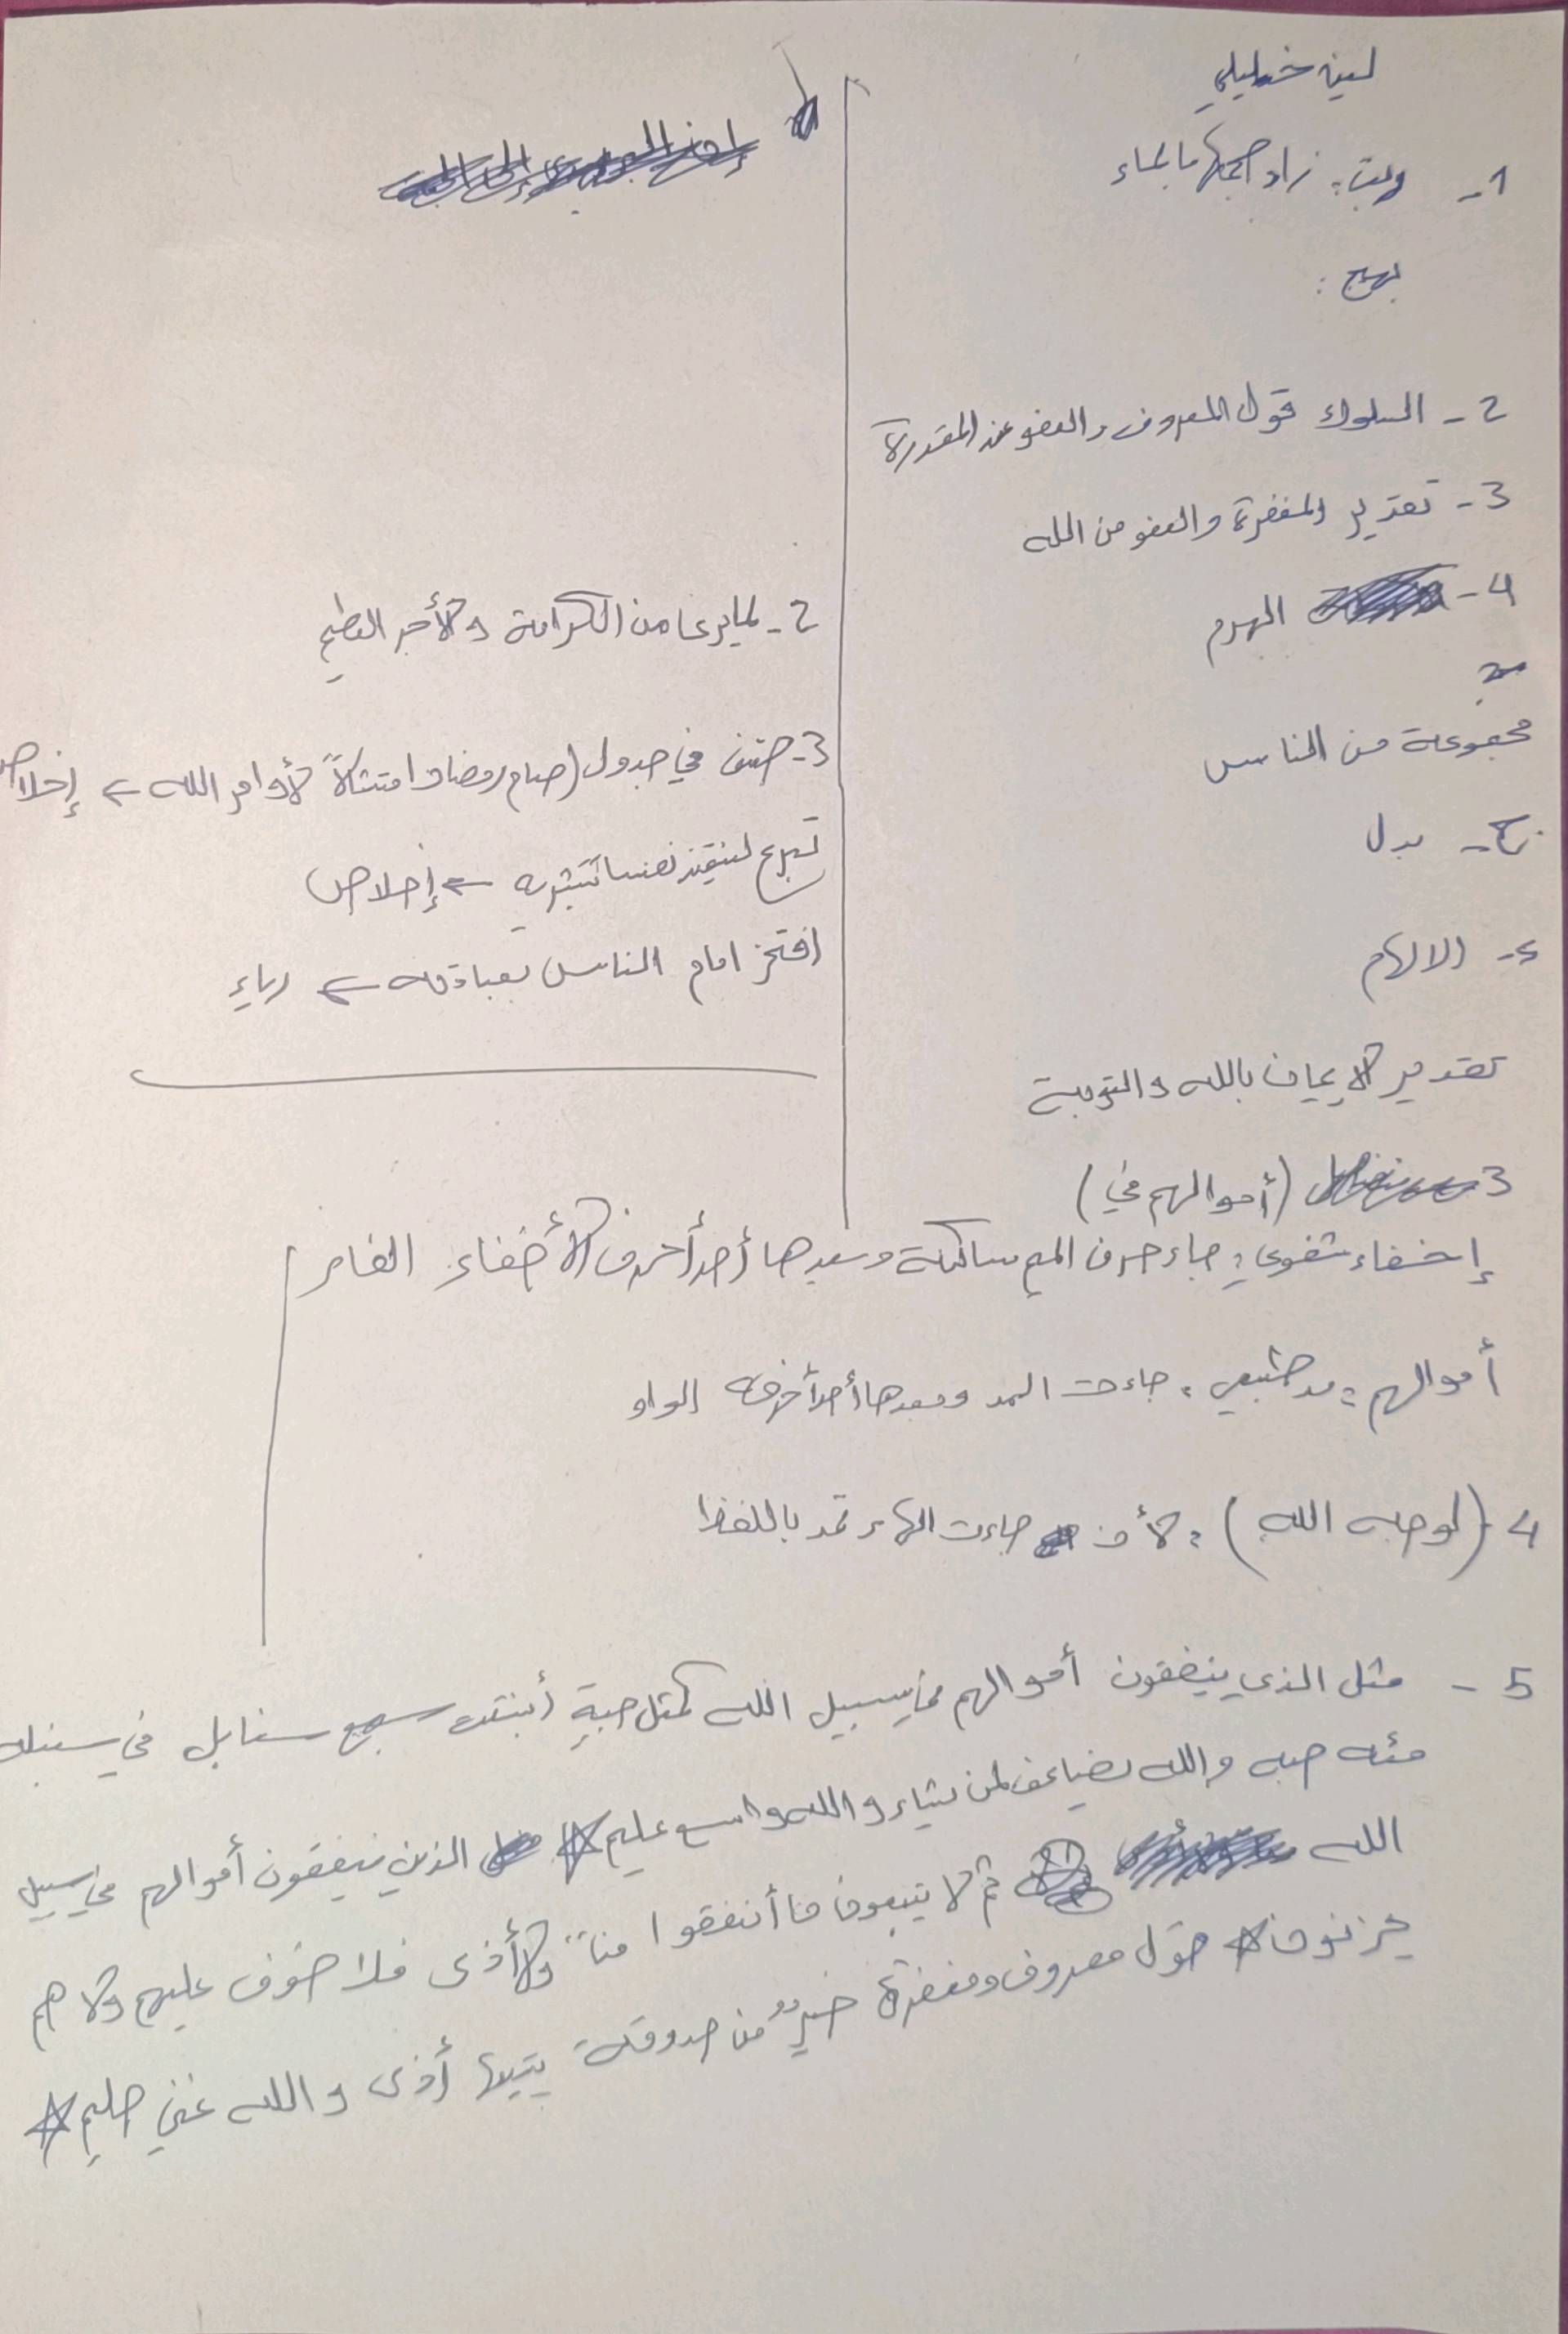 لين خليلي
1- وربت: زاد حجمها بالماء
بهيج :
2- السلوك قول المعروف والعفو عند المقدرة
3- تقدير المغفرة والعفو من الله
4- الهرم
مجموعة من الناس
بدل
الالهام
تقدير الإيمان بالله والتوبة
2- لما يرعا من الكرامة والأجر العظيم
3- صنف في جدول (صيام رمضان امتثالاً لأوامر الله ← إخلاص
تبرع لينقذ نفساً بشرية ← إخلاص
افتخر امام الناس بعبادته ← رياء
3 (أموالهم في)
إخفاء شفوي: جاء حرف الميم ساكنة وبعدها أحد أحرف الأخفاء الفاء
أموالهم: مد طبيعي: جاءت المد وبعدها أحد أحرفه الواو
4 (لوجه الله) : لأن جاءت الهاء تمد باللفظ
5- مثل الذي ينفقون أموالهم في سبيل الله كمثل حبةٍ أنبتت سبع سنابل في سنبله
مئه حبه والله يضاعف لمن يشاء والله واسع عليم الذين ينفقون أموالهم في سبيل
الله ثم لا يتبعون ما أنفقوا مناً ولا أذى فلا خوف عليهم ولا هم
يحزنون قول معروف ومغفرة خيرٌ من صدوقة يتبعها أذى والله غني حليم